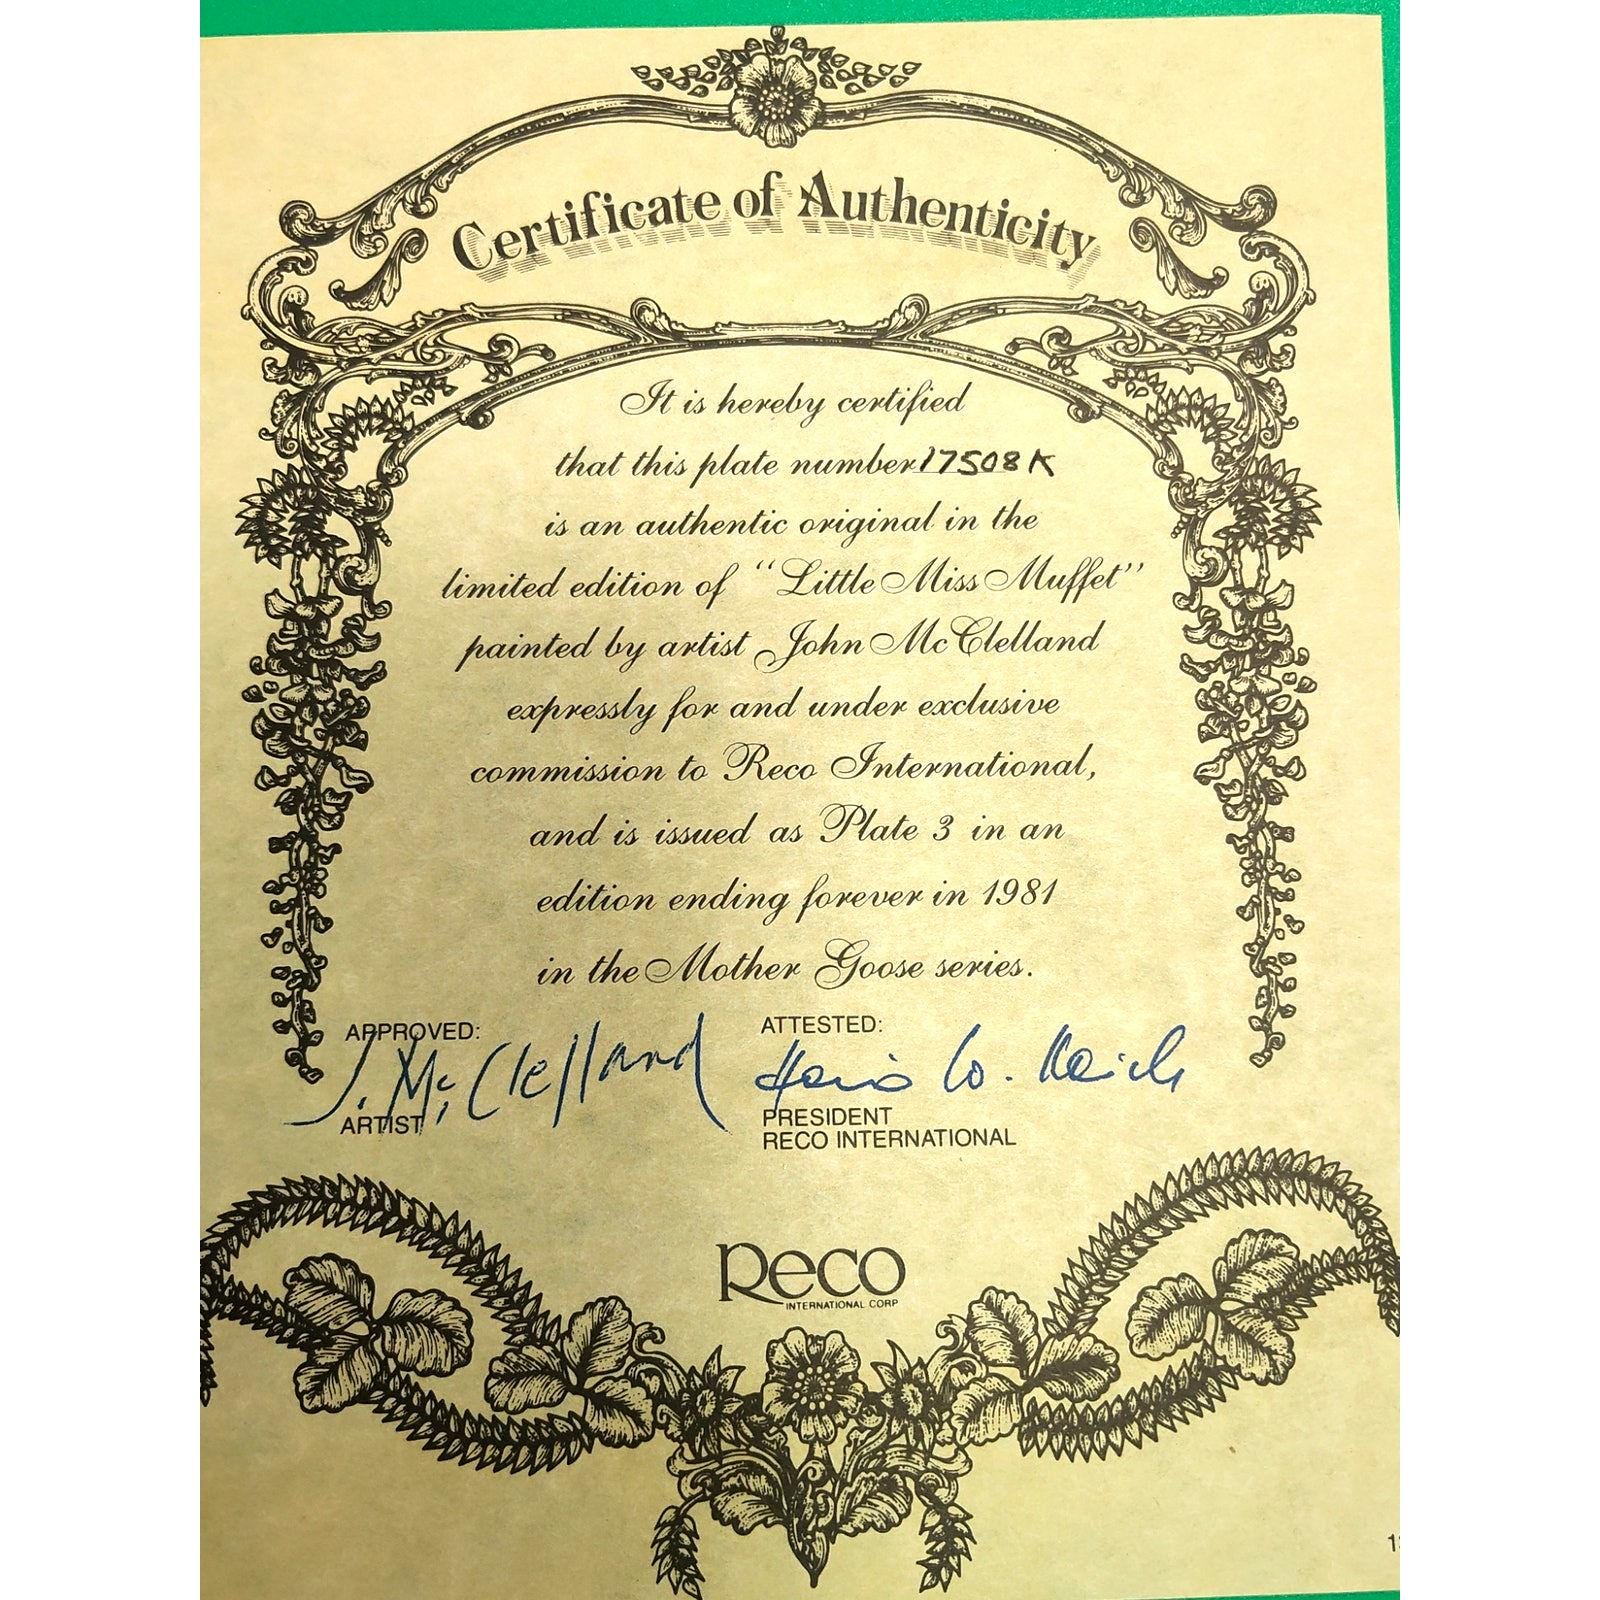 Certificate of Authenticity
It is hereby certified
that this plate number 17508 K
is an authentic original in the
limited edition of "Little Miss Muffet"
painted by artist John McClelland
expressly for and under exclusive
commission to Reco International,
and is issued as Plate 3 in an
edition ending forever in 1981
in the Mother Goose series.
APPROVED:
J. McClelland
ARTIST
ATTESTED:
W.
PRESIDENT
RECO INTERNATIONAL
Reco
INTERNATIONAL CORP